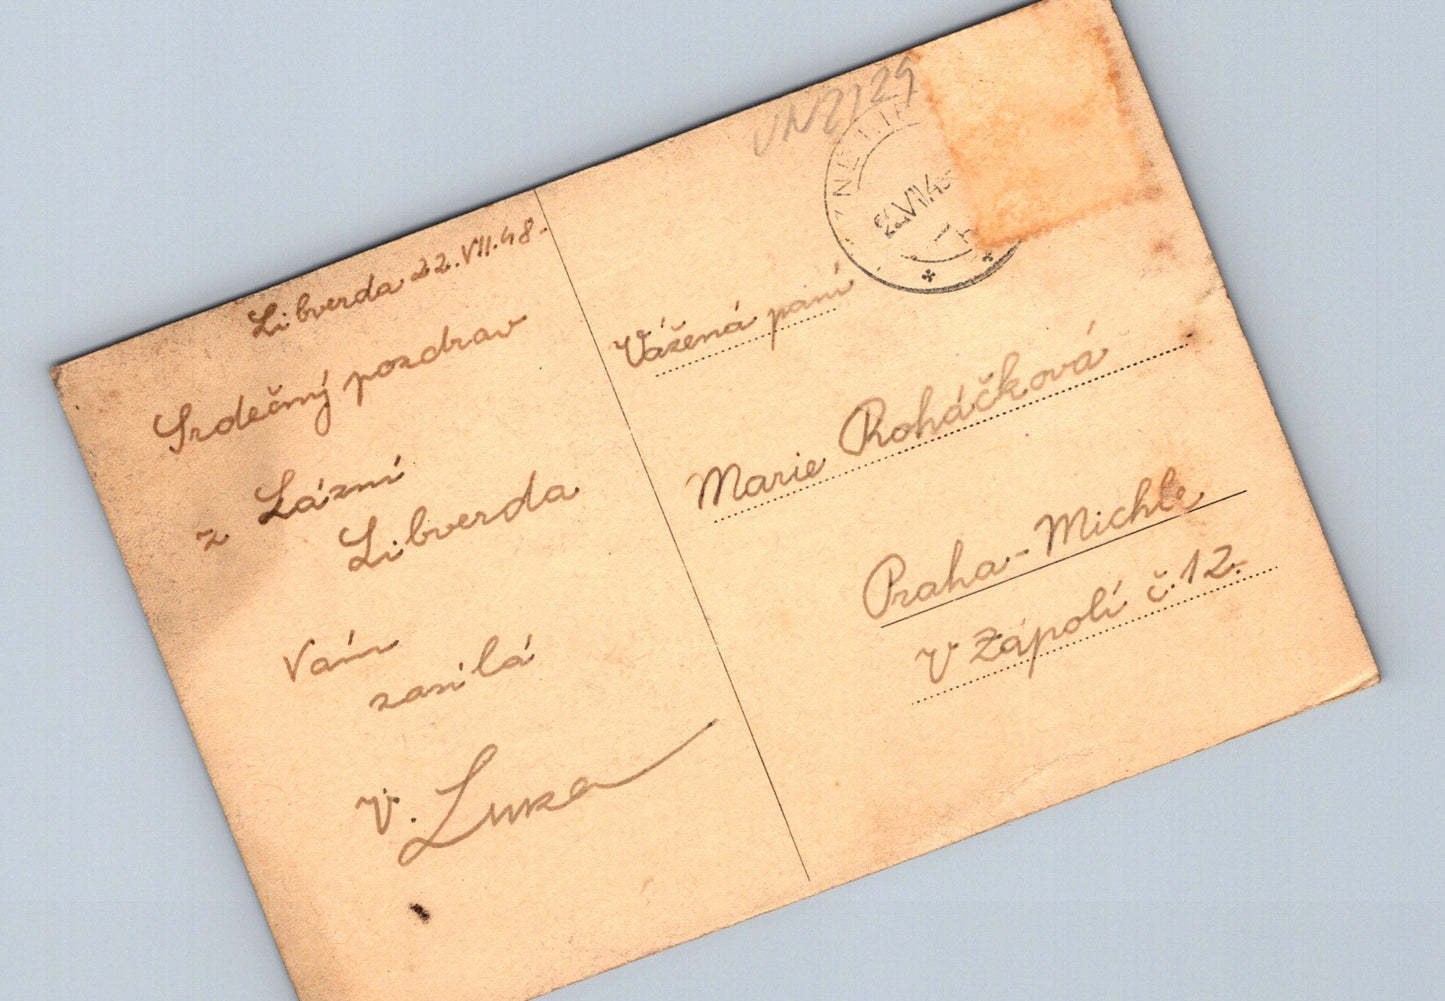 Libverda 22.VII.48.
Srdečný pozdrav
z Lázní
Libverda
Vám
zasílá
V.
Vážená paní
Marie Roháčková
Praha-Michle
V Zápolí č.12.